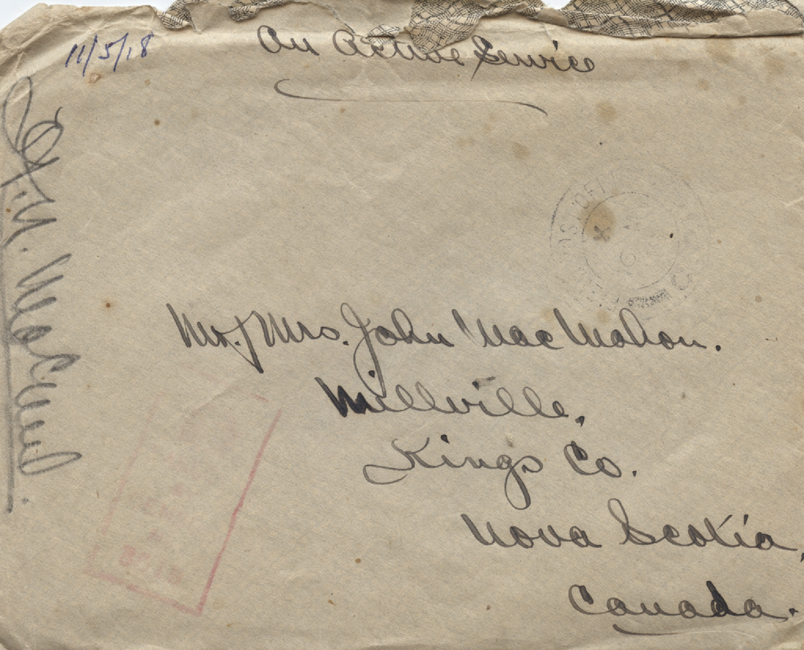 11/5/18
On Active Service
Mr. / Mrs. John MacMahon.
Millville,
Kings Co.
Nova Scotia,
Canada.
POST OFFI